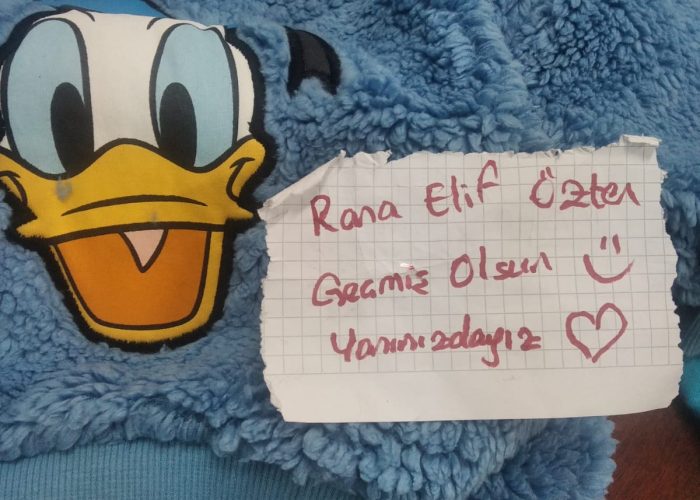 Rana Elif Özten
Geçmiş Olsun
Yanınızdayız